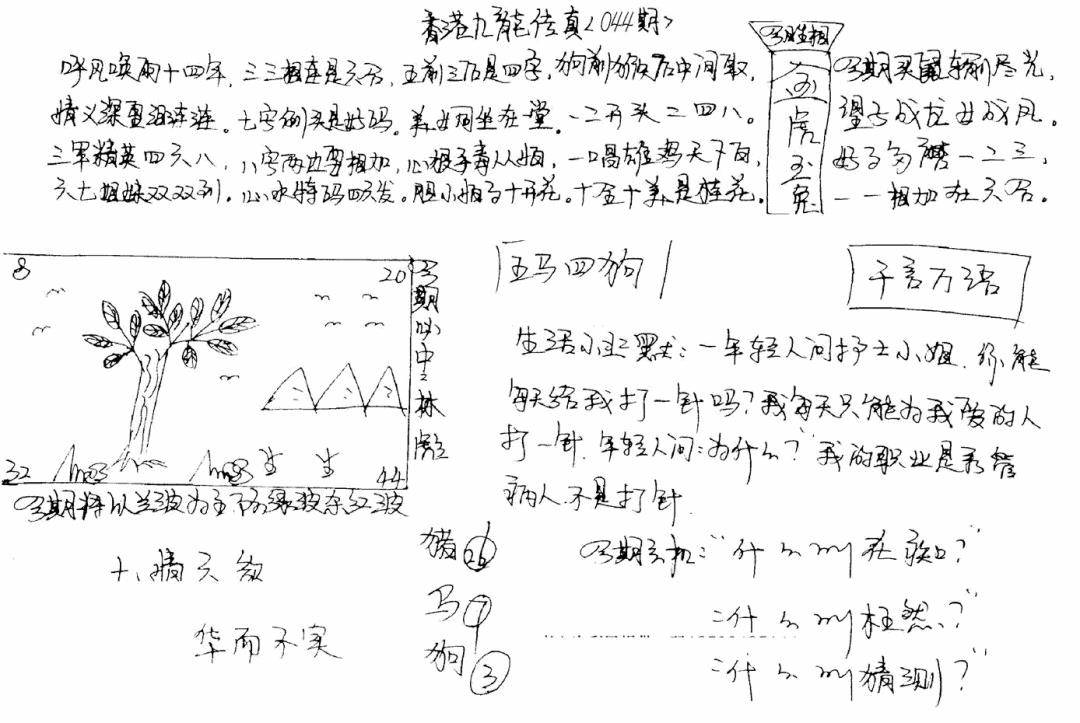 香港九龍传真<044期>
呼风唤雨十四年，三三相连是六合，五前三后是四字，狗前猴后中间取，
情义深重泪涟涟。七字例头是好码。美女同坐在堂。一二开头二四八。
三军精英四六八，八字两边要相加，心狠手毒从头，一唱雄鸡天下白，
六七姐妹双双到。心水特码四六发。胆小怕事十开花。十全十美是桂花。
今期生相
虎
玉
兔
今期买鼠输尽光，
望子成龙女成凤。
好事多磨一二三，
一一相加在六合。
8
20
32
44
今期
中三
林
彪
今期特以兰波为主下防绿波杂红波
五马四狗
千言万语
生活小幽默：一年轻人问护士小姐，你能
每天给我打一针吗？我每天只能为我爱的人
打一针，年轻人问：为什么？我的职业是看管
病人不是打针
今期玄机："什么叫在家？"
"什么叫枉然？"
"什么叫猜测？"
猪 26
马 7
狗 3
十、情六
华而不实